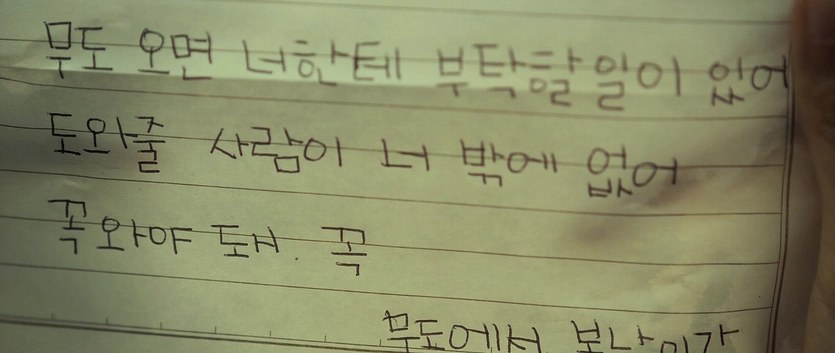 무도 오면 너한테 부탁할일이 있어
도와줄 사람이 너 밖에 없어
꼭와야 돼. 꼭
무도에서